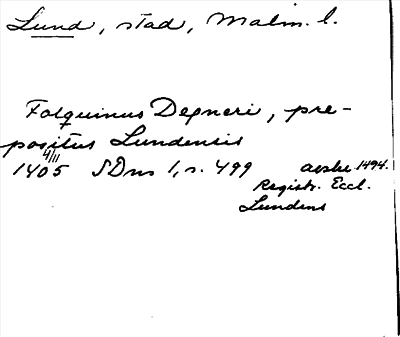 Lund, stad, Malm. l.
Folquinus Degneri, pre-
positus Lundensis
4/11
1405 SDns 1, s. 499 avskr. 1494.
Registr. Eccl.
Lundens